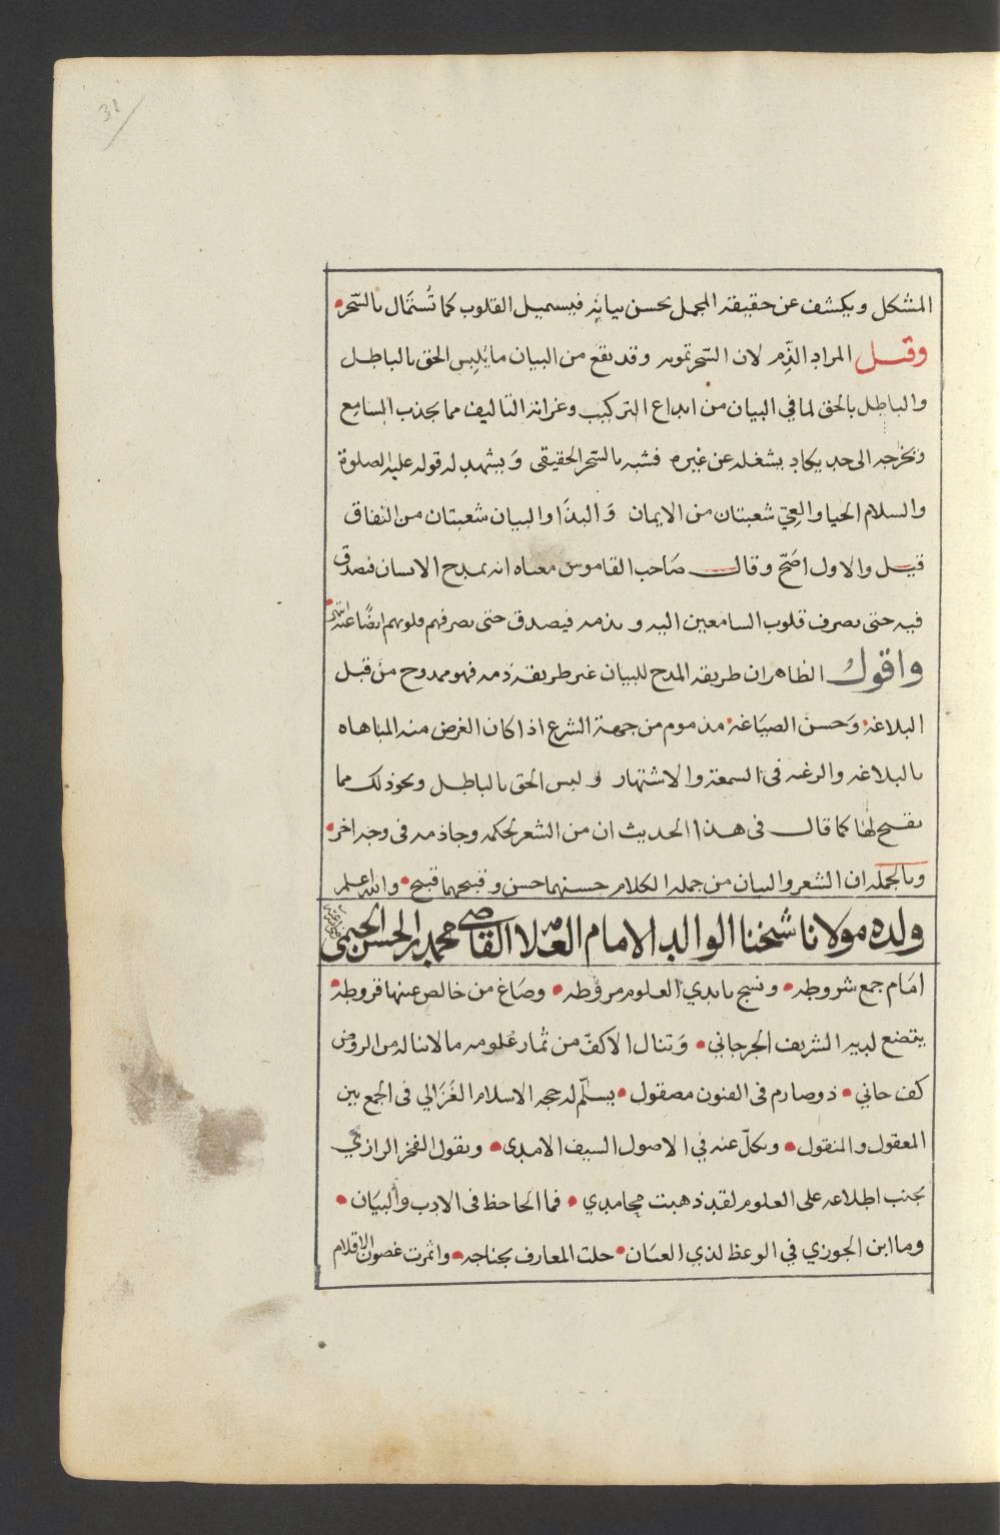 32
المشكل ويكشف عن حقيقة المجمل بحسن بيانه فيستميل القلوب كما تُستمَال بالسّحر
وقيل المراد الذّم لان السّحر تمويه وقد يقع من البيان ما يُلبِس الحق بالباطل
والباطل بالحق لما في البيان من ابداع التركيب وغرابة التاليف مما يجذب السامع
ويخرجه الى حد يكاد يشغله عن غيره فشبه بالسّحر الحقيقى وَيشهد له قوله عليه الصلوة
والسلام الحيا والعيّ شعبتان من الايمان وَالبذَا والبيان شعبتان من النفاق
قيل والاول اصَحّ وقال صَاحب القاموس معناه انه يمدح الانسان فيصدق
فيه حتى يصرف قلوب السامعين اليه ويذمه فيصدق حتى يصرفهم قلوبهم ايضًا عنه انتهى
واقول الظاهر ان طريقة المدح للبيان غير طريقة ذمه فهو ممدوح من قبل
البلاغة وَحسن الصيَاغة مذموم من جهة الشرع اذا كان الغرض منه المباهاه
بالبلاغه والرغبه فى السمعة والاشتهار ولبس الحق بالباطل ونحو ذلك مما
يقبح لها كما قال فى هذا الحديث ان من الشعر لحكمه وجا ذمه فى وجه اخر
وبالجمله ان الشعر والبيان من جملة الكلام حسنهما حسن وقبحهما قبيح والله اعلم
ولده مولانا شيخنا الوالد الامام العلامه القاضي محمد بن الحسن الحيمى
امَام جمع شروطه ونسج بايدي العلوم مروطه وصَاغ من خالص عينها قروطه
يتضع لديه الشريف الجرجاني وَتنال الاكفّ من ثمار عُلومه ما لا يناله من الروض
كف جاني ذو صارم فى الفنون مصقول يسلّم له حجة الاسلام الغَزَالي فى الجمع بين
المعقول والمنقول ويكلّ عنه في الاصول السيف الامدى ويقول الفخر الرازي
بجنب اطلاعه على العلوم لقد ذهبت محامدي فما الجاحظ فى الادب والبيَان
وما ابن الجوزي في الوعظ لذي العيَان حلت المعارف بجنابه واثمرت غصون الاقلام